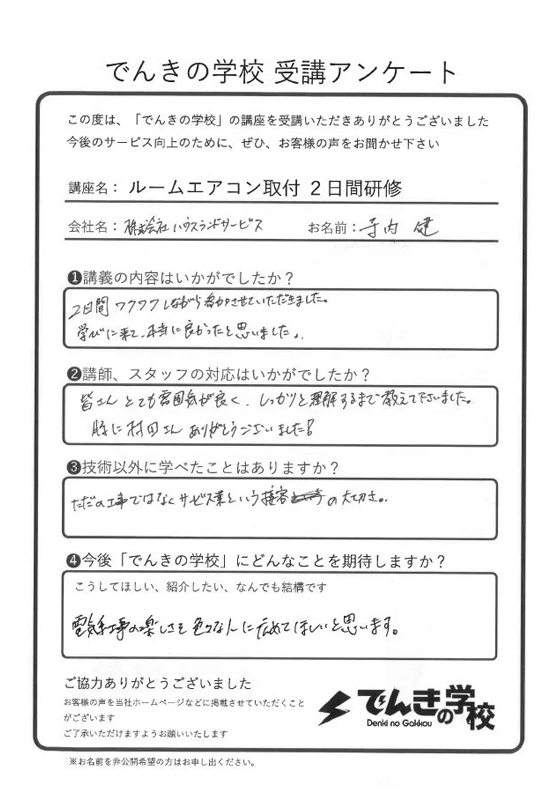 でんきの学校 受講アンケート
この度は、「でんきの学校」の講座を受講いただきありがとうございました
今後のサービス向上のために、ぜひ、お客様の声をお聞かせ下さい
講座名： ルームエアコン取付 2日間研修
会社名： 株式会社ハウスランドサービス お名前： 寺内 健
❶講義の内容はいかがでしたか？
2日間 ワクワクしながら参加させていただきました。
学びに来て、本当に良かったと思いました。
❷講師、スタッフの対応はいかがでしたか？
皆さん とても雰囲気が良く、しっかりと理解するまで教えて下さいました。
特に村田さん ありがとうございました！
❸技術以外に学べたことはありますか？
ただの工事ではなくサービス業という接客の大切さ。
❹今後「でんきの学校」にどんなことを期待しますか？
こうしてほしい、紹介したい、なんでも結構です
電気工事の楽しさを色々な人に広めてほしいと思います。
ご協力ありがとうございました
お客様の声を当社ホームページなどに掲載させていただくこと
がございます
ご了承いただけますようお願いいたします
でんきの学校
Denki no Gakkou
※お名前を非公開希望の方はお申し出ください。